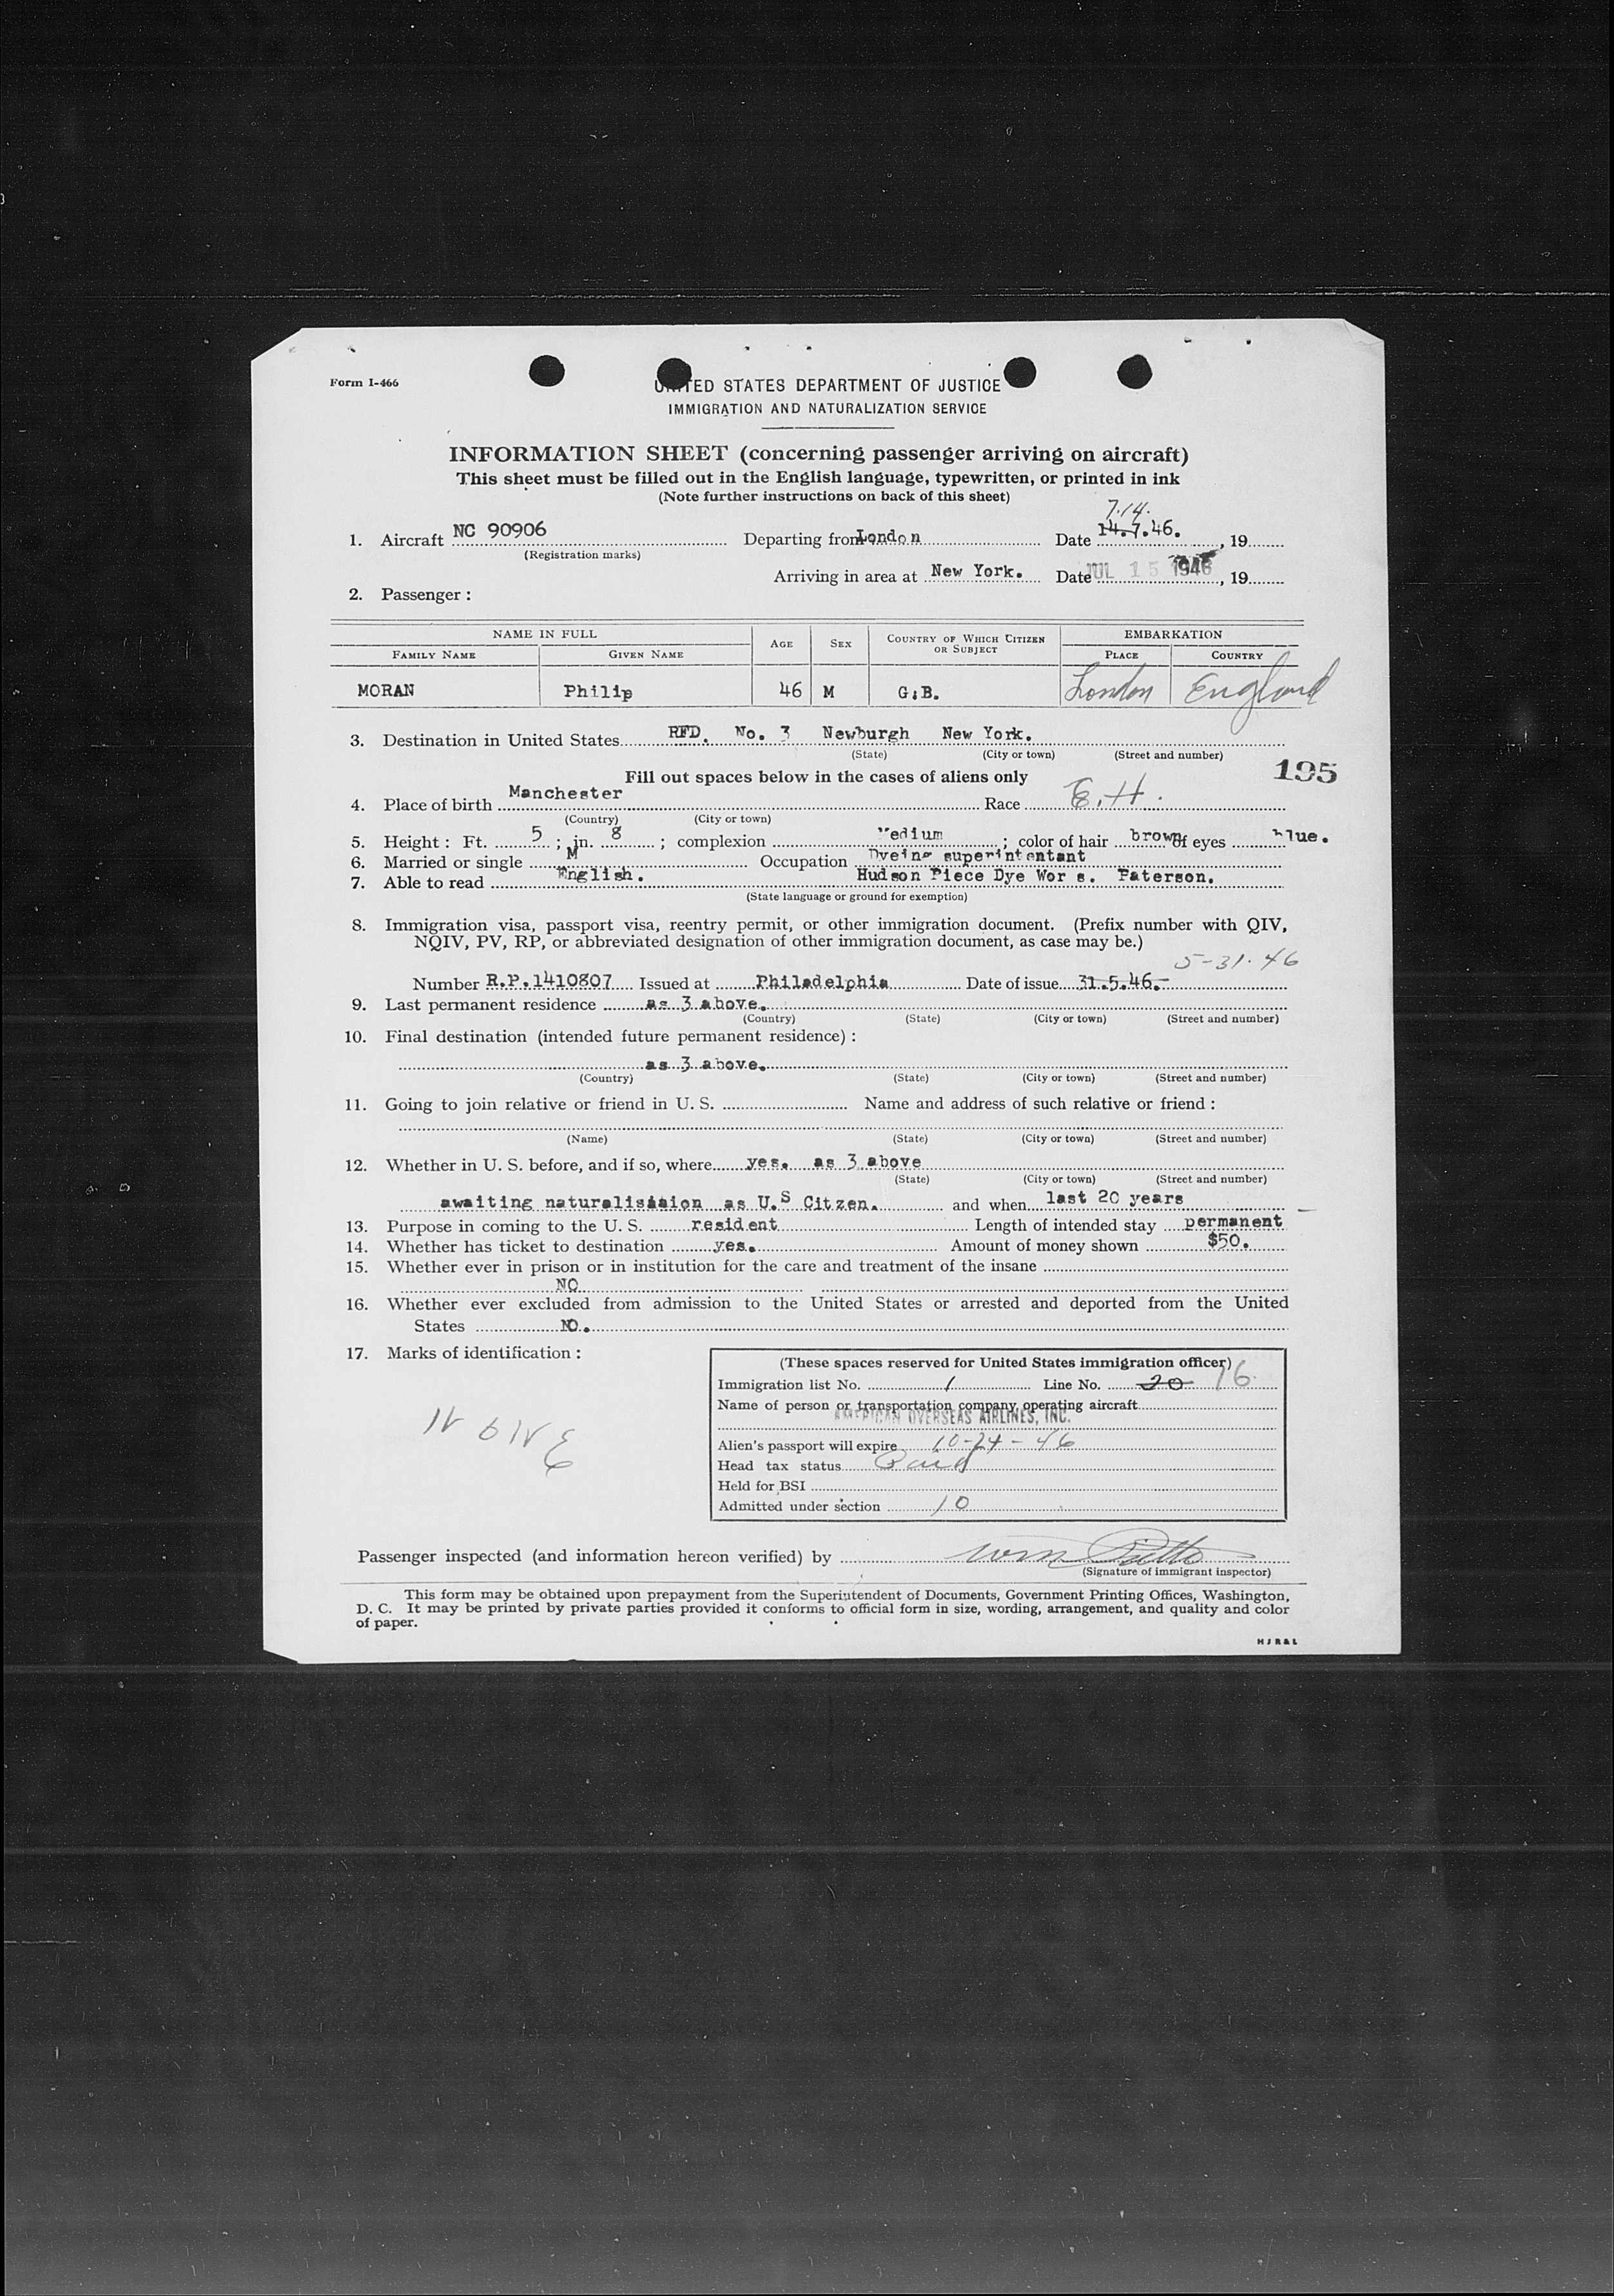 Form I-466
UNITED STATES DEPARTMENT OF JUSTICE
IMMIGRATION AND NATURALIZATION SERVICE
INFORMATION SHEET (concerning passenger arriving on aircraft)
This sheet must be filled out in the English language, typewritten, or printed in ink
(Note further instructions on back of this sheet)
7.14.
1. Aircraft NC 90906 Departing from London Date 14.7.46. , 19
(Registration marks)
Arriving in area at New York. Date JUL 15 1946 , 19
2. Passenger :
NAME IN FULL AGE SEX COUNTRY OF WHICH CITIZEN OR SUBJECT EMBARKATION
FAMILY NAME GIVEN NAME PLACE COUNTRY
MORAN Philip 46 M G.B. London England
3. Destination in United States RFD. No. 3 Newburgh New York.
(State) (City or town) (Street and number)
195
Fill out spaces below in the cases of aliens only
4. Place of birth Manchester Race
(Country) (City or town)
5. Height : Ft. 5 ; in. 8 ; complexion Medium ; color of hair brown of eyes blue.
6. Married or single M Occupation Dyeing superintentant
7. Able to read English. Hudson Piece Dye Wor s. Paterson.
(State language or ground for exemption)
8. Immigration visa, passport visa, reentry permit, or other immigration document. (Prefix number with QIV,
NQIV, PV, RP, or abbreviated designation of other immigration document, as case may be.)
5-31-46
Number R.P.1410807 Issued at Philadelphia Date of issue 31.5.46.
9. Last permanent residence as 3 above.
(Country) (State) (City or town) (Street and number)
10. Final destination (intended future permanent residence) :
as 3 above.
(Country) (State) (City or town) (Street and number)
11. Going to join relative or friend in U. S. Name and address of such relative or friend :
(Name) (State) (City or town) (Street and number)
12. Whether in U. S. before, and if so, where yes. as 3 above
(State) (City or town) (Street and number)
awaiting naturalisaion as U.S Citzen. and when last 20 years
13. Purpose in coming to the U. S. resident Length of intended stay permanent
14. Whether has ticket to destination yes. Amount of money shown $50.
15. Whether ever in prison or in institution for the care and treatment of the insane
NO
16. Whether ever excluded from admission to the United States or arrested and deported from the United
States NO.
17. Marks of identification :
(These spaces reserved for United States immigration officer)
Immigration list No. 1 Line No. 20 16
Name of person or transportation company operating aircraft
AMERICAN OVERSEAS AIRLINES, INC.
Alien's passport will expire 10-24-46
Head tax status Paid
Held for BSI
Admitted under section 10
Passenger inspected (and information hereon verified) by
(Signature of immigrant inspector)
This form may be obtained upon prepayment from the Superintendent of Documents, Government Printing Offices, Washington,
D. C. It may be printed by private parties provided it conforms to official form in size, wording, arrangement, and quality and color
of paper.
H J R & L